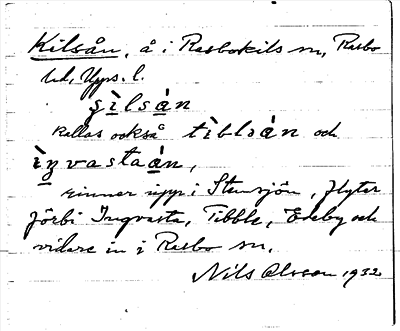 Kilsån, å i Rasbokils sn, Rasbo
hd, Upps. l.
ʂìlsán
kallas också tìblsán och
ìŋvastaán,
rinner upp i Stensjön, flyter
förbi Ingvasta, Tibble, Eneby och
vidare in i Rasbo sn.
Nils Olsson 1932